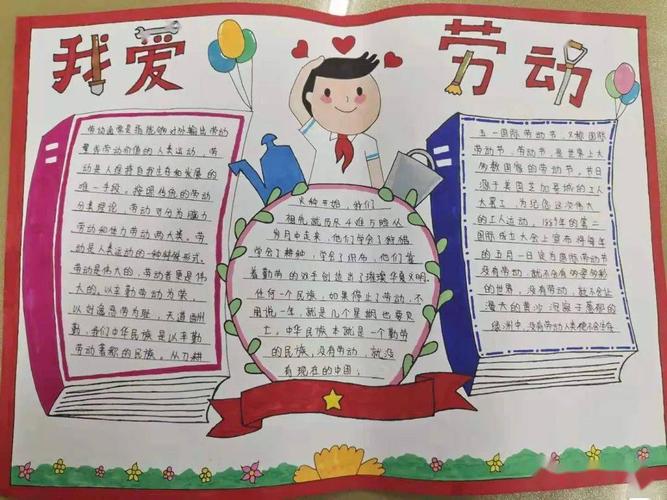 我爱
劳动
劳动通常是指能够对外输出劳动
量或劳动价值的人类运动，劳
动是人维持自我生存和发展的
唯一手段。按照传统的劳动
分类理论，劳动可分为脑力
劳动和体力劳动两大类。劳
动是人类运动的一种特殊形式。
劳动是伟大的，劳动者更是伟
大的。以辛勤劳动为荣，
以好逸恶劳为耻，天道酬
勤，我们中华民族是以辛勤
劳动著称的民族。从刀耕
火种开始，我们
祖先就历尽艰难与险从
岁月中走来，他们学会了狩猎
学会了耕种，学会了织布，他们靠
着勤劳的双手创造出了璀璨华夏文明。
任何一个民族，如果停止了劳动，不
用说一年，就是几个星期也要灭
亡。中华民族本就是一个勤劳
的民族，没有劳动，就没
有现在的中国；
五一国际劳动节，又称国际
劳动节、劳动节，是世界上大
多数国家的劳动节。节日
源于美国芝加哥城的工人
大罢工，为纪念这次伟大
的工人运动，1889年的第二
国际成立大会上宣布将每年
的五月一日定为国际劳动节
没有劳动，就不会有多姿多彩
的世界，没有劳动，就不会让
漫大的黄沙沉寂于葱郁的
绿洲中，没有劳动人类便不会生存